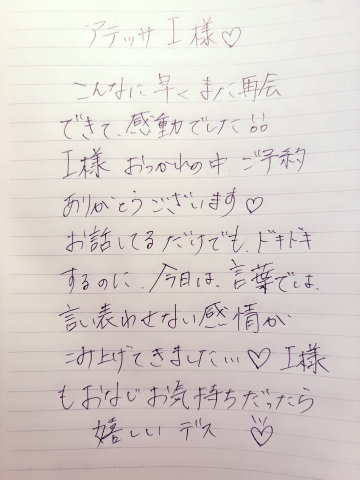 アテッサ I様♡
こんなに早くまた再会
できて、感動でした!!
I様 おつかれの中、ご予約
ありがとうございます♡
お話してるだけでも、ドキドキ
するのに、今日は、言葉では、
言い表わせない感情が
こみ上げてきました…♡ I様
もおなじお気持ちだったら
嬉しいデス♡